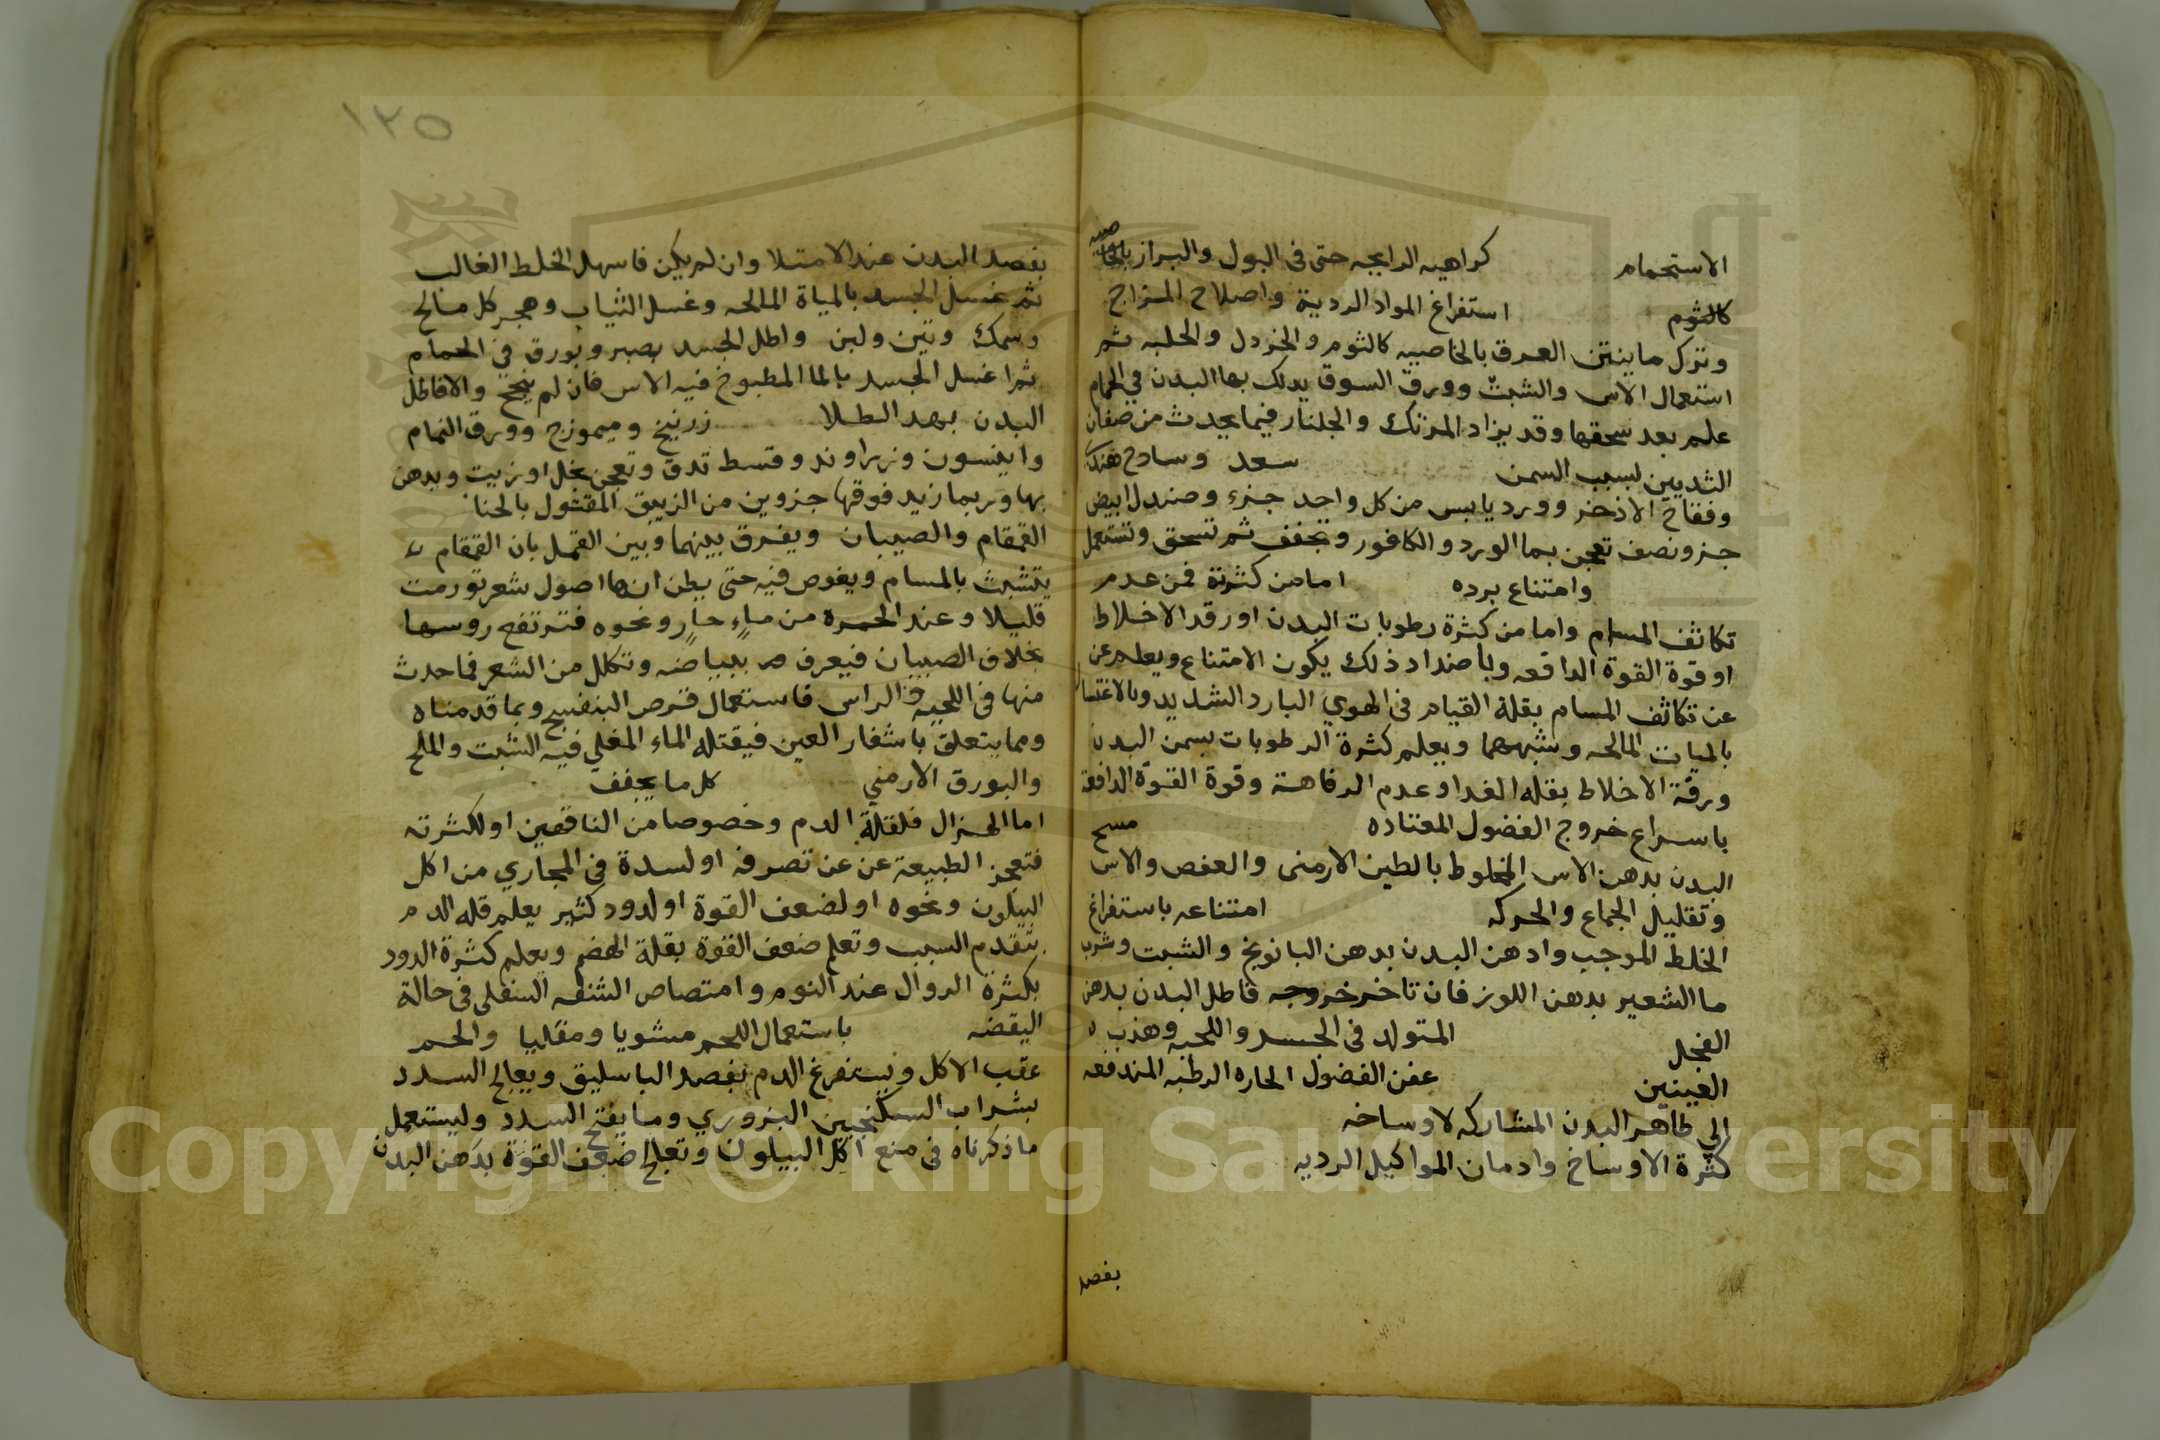 الاستحمام كراهيه الرايحه حتى فى البول والبراز بالخاصيه
كالثوم استفراغ المواد الرديه واصلاح المزاج
وترك ماينتن العرق بالخاصيه كالثوم والخردل والحلبه ثم
استعمال الاس والشبث وورق السوق يدلك بها البدن في الحمام
علم بعد سحقها وقد يزاد المرتك والجلنار فيما يحدث من صفان
الثديين لسبب السمن سعد وسادح هندى
وفقاح الاذخر وورد يابس من كل واحد جزء وصندل ابيض
جزو نصف تعجن بما الورد والكافور وتجفف ثم تسحق وتستعمل
وامتناع برده اما من كثرته فمن عدم
تكاثف المسام واما من كثرة رطوبات البدن اورقد الاخلاط
او قوة القوة الدافعه وباضداد ذلك يكون الامتناع ويعلم عن
عن تكاثف المسام بقلة القيام فى الهوي البارد الشديد وبالاغتسال
بالميات المالحه وشبههما ويعلم كثرة الرطوبات بسمن البدن
ورقة الاخلاط بقله الغدا وعدم الرفاهة وقوة القوة الدافعة
باسراع خروج الفضول المعتاده مسح
البدن بدهن الاس المخلوط بالطين الارمنى والعفص والاس
وتقليل الجماع والحركه امتناعه باستفراغ
الخلط الموجب وادهن البدن بدهن البانونج والشبت وشرب
ما الشعير بدهن اللوز فان تاخر خروجه فاطل البدن بدهن
الفجل المتولد فى الجسد واللحيه وهذب
العينين عفن الفضول الحاره الرطبه المندفعه
الي ظاهر البدن المشاركه لاوساخه
كثرة الاوساخ وادمان المواكيل الرديه
بفصد
١٢٥
بفصد البدن عند الامتلا وان لم يكن فاسهل الخلط الغالب
ثم غسل الجسد بالمياة المالحه وغسل الثياب وهجر كل مالح
وسمك وتين ولبن واطل الجسد بصبر وبورق في الحمام
ثم اغسل الجسد بالما المطبوخ فيه الاس فان لم ينجح والا فاطل
البدن بهد الطلا زرنيخ وميموزج وورق النمام
وانيسون وزراوند وقسط تدق وتعجن بخل اوزيت ويدهن
بها وربما زيد فوقها جزوين من الزيبق المقتول بالحنا
القمقام والصيبان ويفرق بينهما وبين القمل بان القمقام
يتشبث بالمسام ويغوص فيه حتى يظن انها اصول شعر تورمت
قليلا وعند الحمره من ماءٍ حارٍ ونحوه فترتفع روسها
بخلاف الصيبان فيعرف ببياضه وتكلل من الشعر فما حدث
منها فى اللحيه والراس فاستعمال قرص البنفسج وبما قدمناه
ومما يتعلق باشفار العين فيقتله الماء المغلي فيه الشبت والملح
والبورق الارمني كل ما يجفف
اما الهزال فلقلة الدم وخصوصا من الناقهين اولكثرته
فتعجز الطبيعة عن عن تصرفه او لسدة في المجاري من اكل
البيلون ونحوه او لضعف القوة او لدود كثير يعلم قله الدم
بتقدم السبب وتعلم ضعف القوة بقلة الهضم ويعلم كثرة الدود
بكثرة الروال عند النوم وامتصاص الشفه السفلى فى حالة
اليقضه باستعمال اللحم مشويا ومقليا والحم
عقب الاكل ويستفرغ الدم بفصد الباسليق ويعالج السدد
بشراب السكنجبين البزوري وما يفتح السدد وليستعمل
ما ذكرناه فى منع اكل البيلون وتعالج ضعف القوة بدهن البدن
Copyright © King Saud University